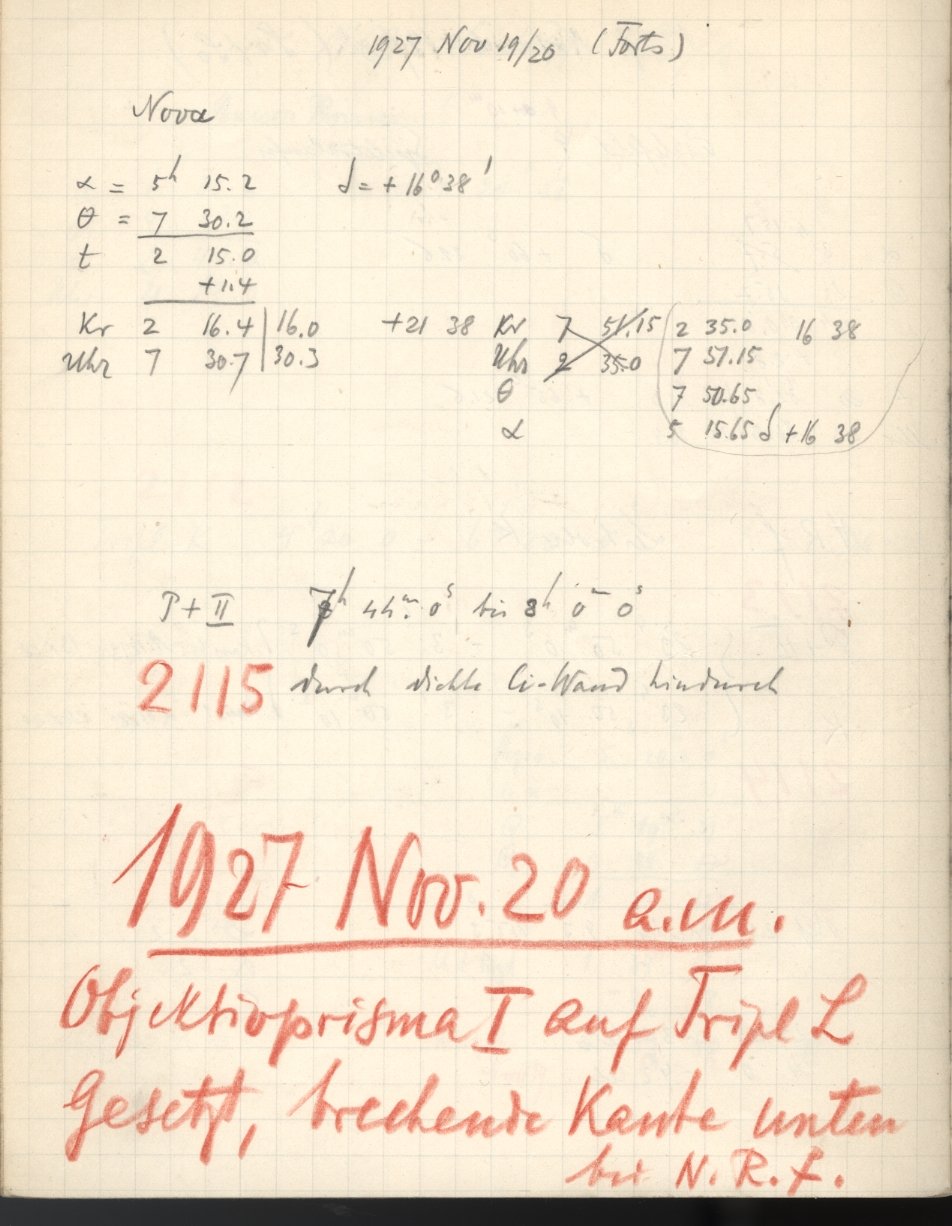 1927 Nov 19/20 (Forts)
Nova
α = 5h 15.2 δ = + 16° 38'
θ = 7 30.2
t 2 15.0
+1.4
Kr 2 16.4 | 16.0 +21 38 Kr 7 51.15 2 35.0 16 38
Uhr 7 30.7 | 30.3 Uhr 2 35.0 7 51.15
θ 7 50.65
α 5 15.65 δ +16 38
P + II 7h 44m 0s bis 8h 0m 0s
2115 durch dichte Ci-Wand hindurch
1927 Nov. 20 a.m.
Objektivprisma I auf Tripl L
Gesetzt, brechende Kante unten
bei N. R. f.